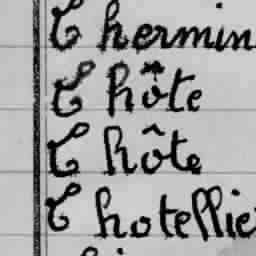 T hermin
T hôte
T hôte
T hotellie